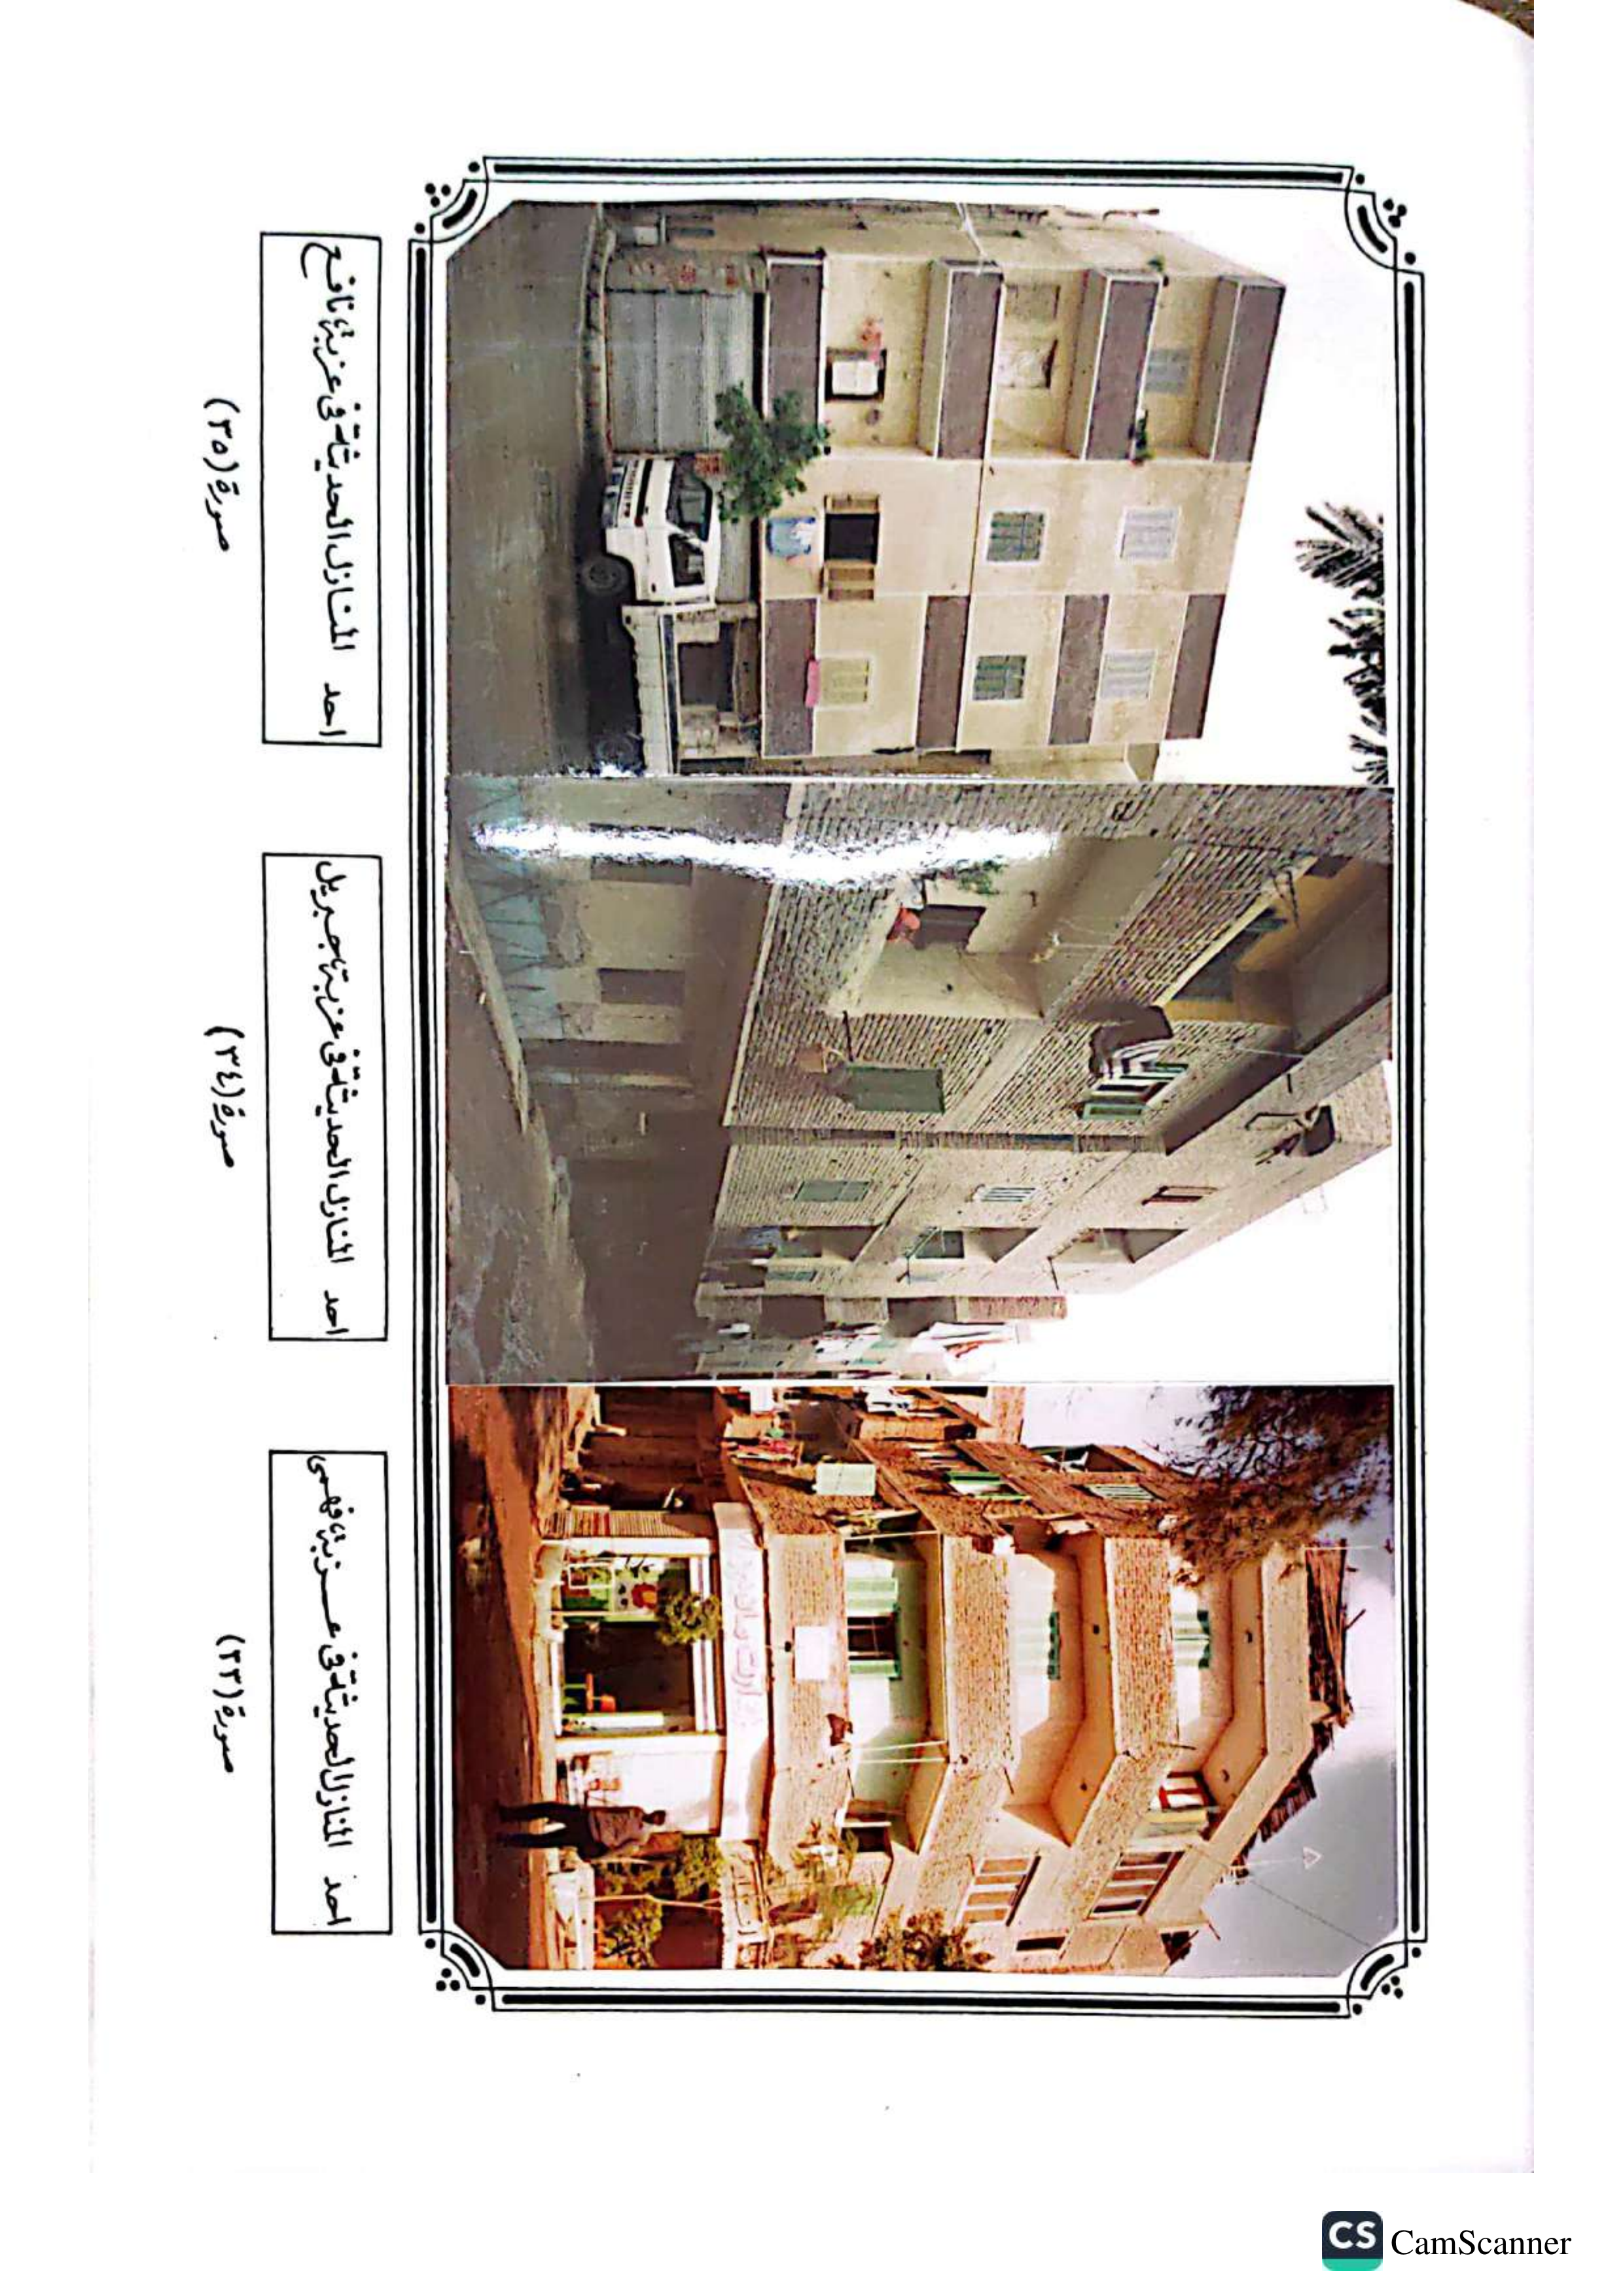 احد المنازل الحديثة فى عزبة فهمى
صورة (٣٣)
احد المنازل الحديثة فى عزبة جبريل
صورة (٣٤)
احد المنازل الحديثة فى عزبة نافع
صورة (٣٥)
CS CamScanner